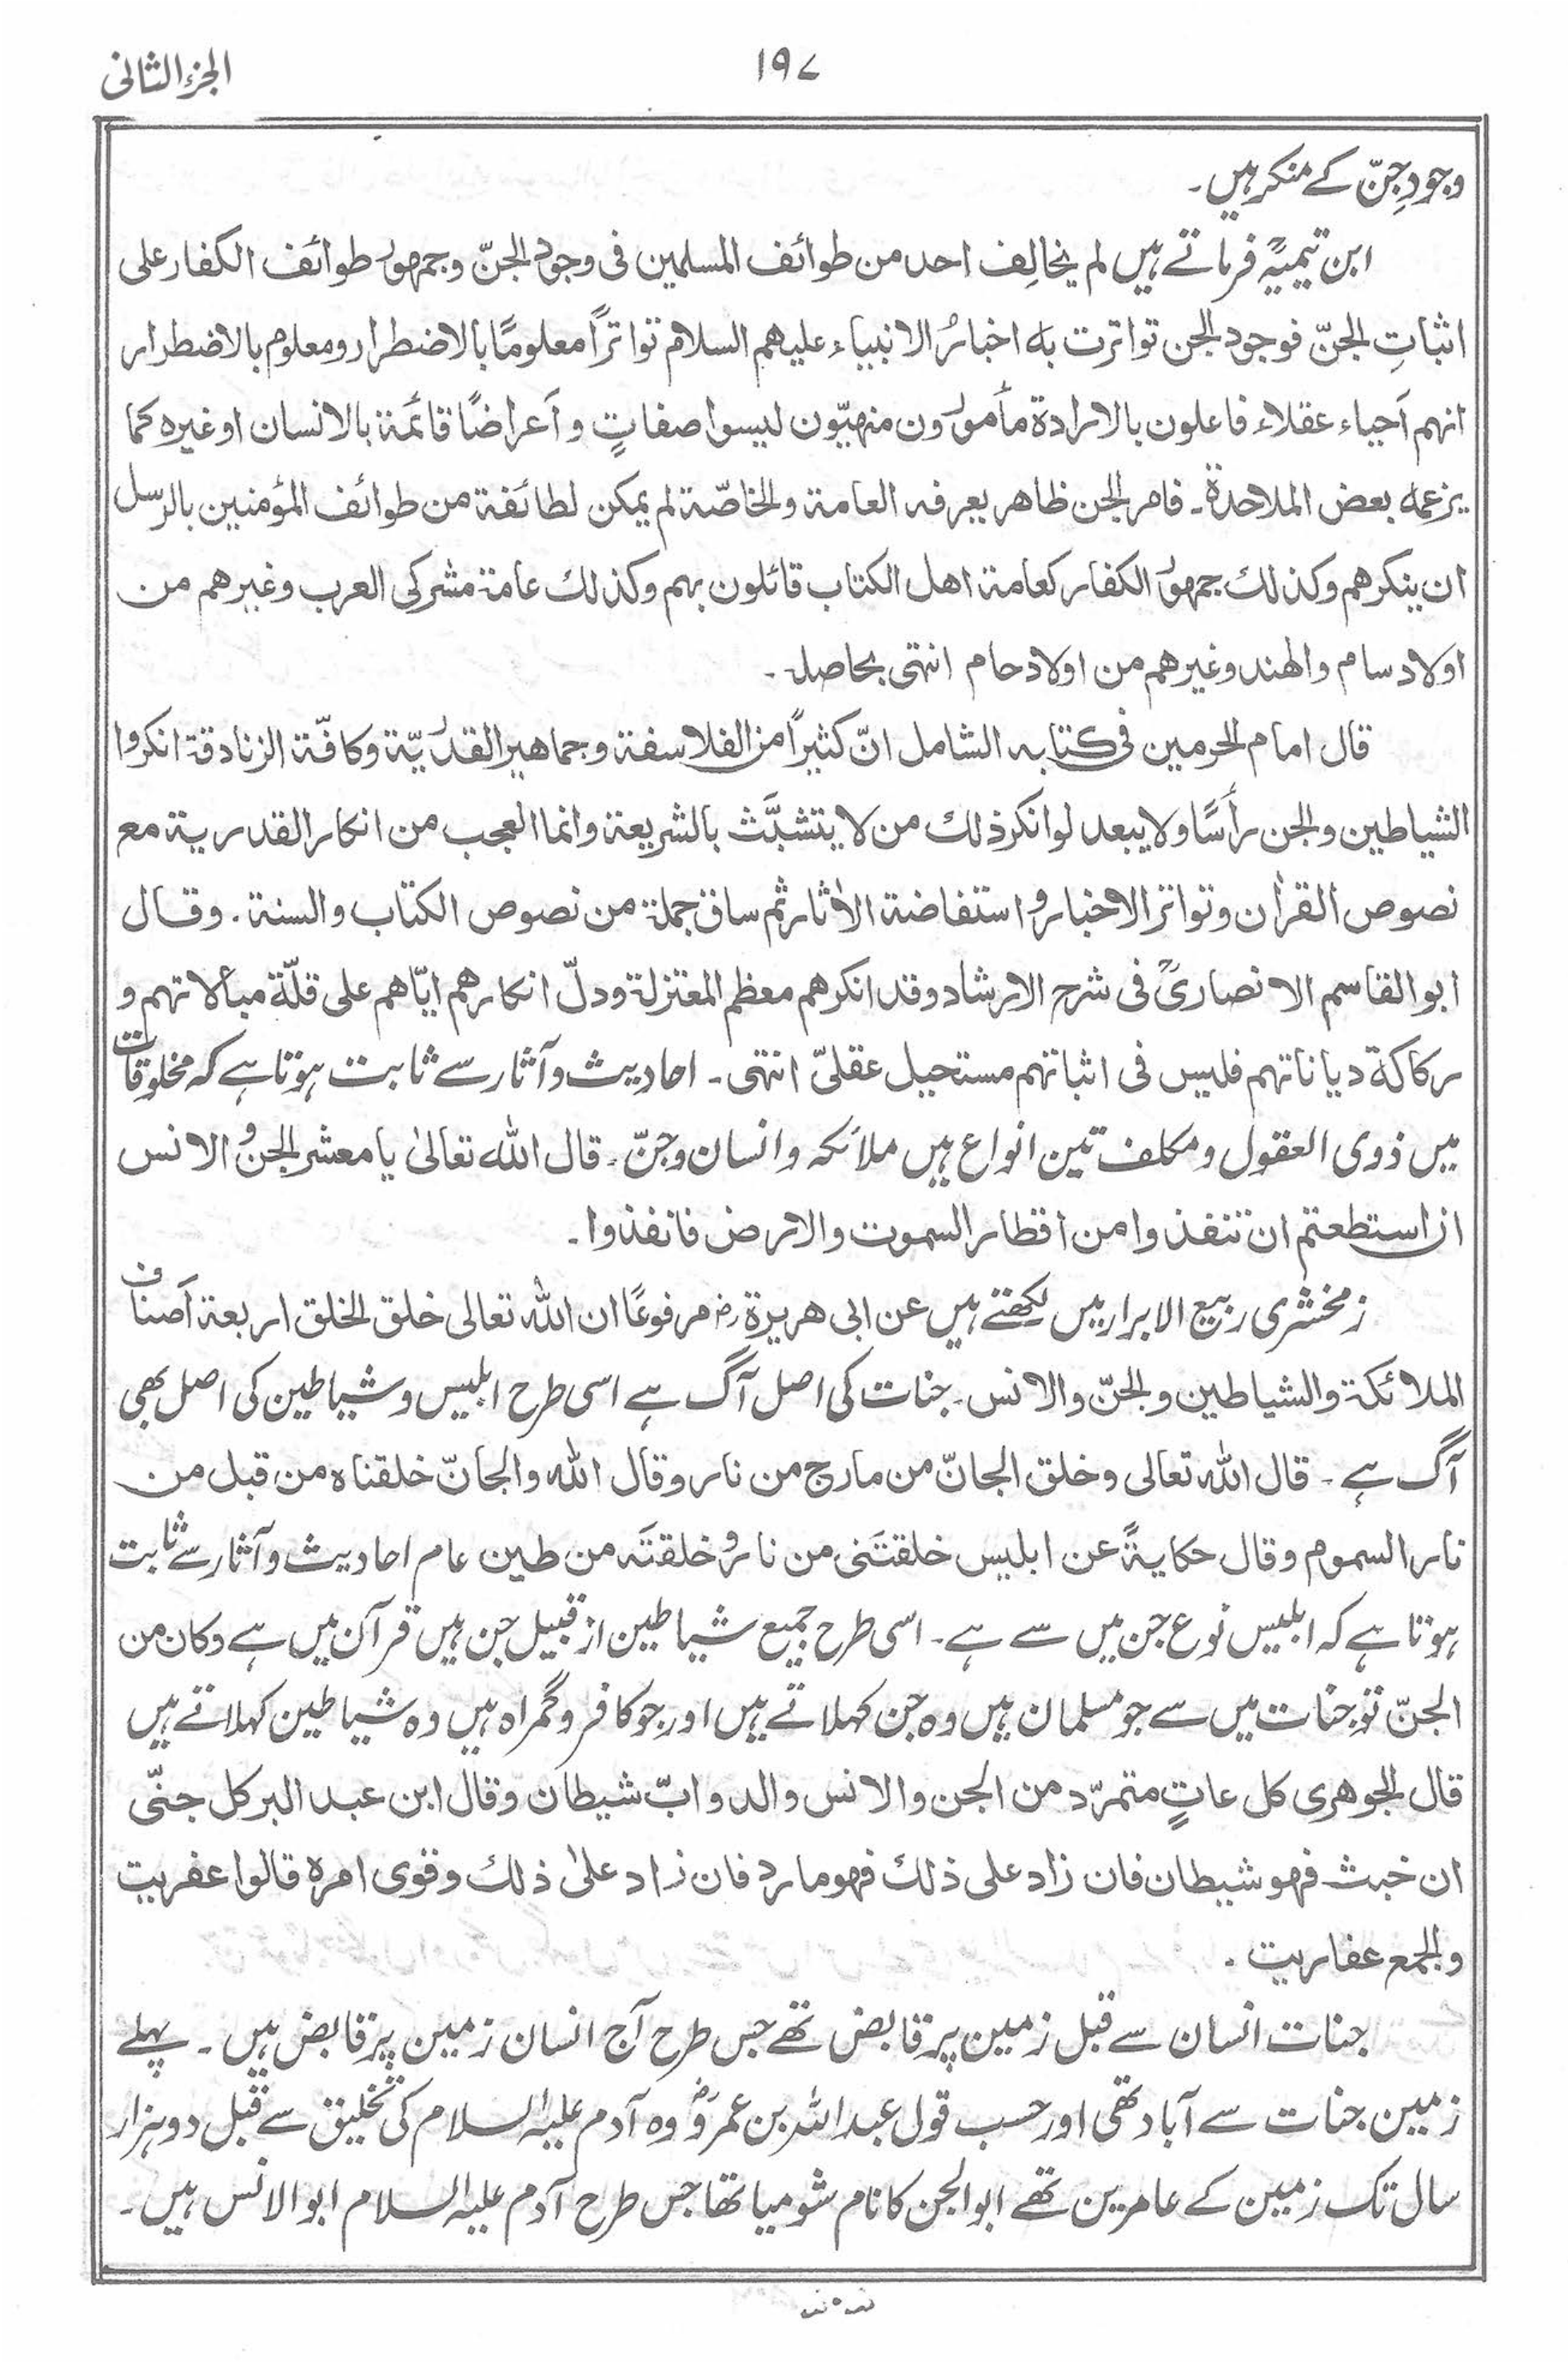 الجزء الثانی
۱۹۷
وجودِ جنّ کے منکر ہیں۔
ابن تیمیہؒ فرماتے ہیں لم یخالِف احد من طوائف المسلمین فی وجود الجنّ وجمھور طوائف الکفار علی
اثباتِ الجنّ فوجود الجن تواترت بہ اخبارُ الانبیاء علیھم السلام تواتراً معلومًا بالاضطرار ومعلوم بالاضطرار
انھم اَحیاء عقلاء فاعلون بالارادۃ مأمورون منھیّون لیسوا صفاتٍ و اَعراضًا قائمۃ بالانسان او غیرہ کما
یزعمہ بعض الملاحدۃ۔ فامر الجن ظاھر یعرفہ العامۃ والخاصّۃ لم یمکن لطائفۃ من طوائف المؤمنین بالرسل
ان ینکرھم وکذلک جمھور الکفار کعامۃ اھل الکتاب قائلون بھم وکذلک عامۃ مشرکی العرب وغیرھم من
اولاد سام والھند وغیرھم من اولاد حام انتھی بحاصلہ۔
قال امام الحرمین فی کتابہ الشامل انّ کثیراً من الفلاسفۃ وجماھیر القدریّۃ وکافّۃ الزنادقۃ انکروا
الشیاطین والجن رأسًا ولا یبعد لو انکر ذلک من لا یتشبَّث بالشریعۃ وانما العجب من انکار القدریۃ مع
نصوص القراٰن وتواتر الاخبار و استفاضۃ الاٰثار ثم ساق جملۃ من نصوص الکتاب والسنۃ۔ وقال
ابوالقاسم الانصاریؒ فی شرح الارشاد وقد انکرھم معظم المعتزلۃ ودلّ انکارھم ایّاھم علی قلّۃ مبالاتھم و
رکاکۃ دیاناتھم فلیس فی اثباتھم مستحیل عقلیّ انتھی۔ احادیث وآثار سے ثابت ہوتا ہے کہ مخلوقات
میں ذوی العقول و مکلف تین انواع ہیں ملائکہ و انسان و جنّ۔ قال اللہ تعالیٰ یا معشر الجن و الانس
ان استطعتم ان تنفذوا من اقطار السموت والارض فانفذوا۔
زمخشری ربیع الابرار میں لکھتے ہیں عن ابی ھریرۃ رض مرفوعًا ان اللہ تعالی خلق الخلق اربعۃ اَصناف
الملائکۃ والشیاطین والجنّ والانس۔ جنات کی اصل آگ ہے اسی طرح ابلیس و شیاطین کی اصل بھی
آگ ہے۔ قال اللہ تعالی وخلق الجانّ من مارج من نار وقال اللہ والجانّ خلقناہ من قبل من
نار السموم وقال حکایۃً عن ابلیس خلقتَنی من نار و خلقتَہ من طین عام احادیث و آثار سے ثابت
ہوتا ہے کہ ابلیس نوع جن میں سے ہے۔ اسی طرح جمیع شیاطین از قبیل جن ہیں قرآن میں ہے وکان من
الجنّ تو جنّات میں سے جو مسلمان ہیں وہ جن کہلاتے ہیں اور جو کافر و گمراہ ہیں وہ شیاطین کہلاتے ہیں
قال الجوھری کل عاتٍ متمرّد من الجن والانس والدوابّ شیطان وقال ابن عبد البر کل جنّی
ان خبث فھو شیطان فان زاد علی ذلک فھو مارد فان زاد علیٰ ذلک وقوی امرہ قالوا عفریت
والجمع عفاریت۔
جنات انسان سے قبل زمین پر قابض تھے جس طرح آج انسان زمین پر قابض ہیں۔ پہلے
زمین جنات سے آباد تھی اور حسب قول عبداللہ بن عمروؓ وہ آدم علیہ السلام کی تخلیق سے قبل دو ہزار
سال تک زمین کے عامرین تھے ابوالجن کا نام شومیا تھا جس طرح آدم علیہ السلام ابوالانس ہیں۔